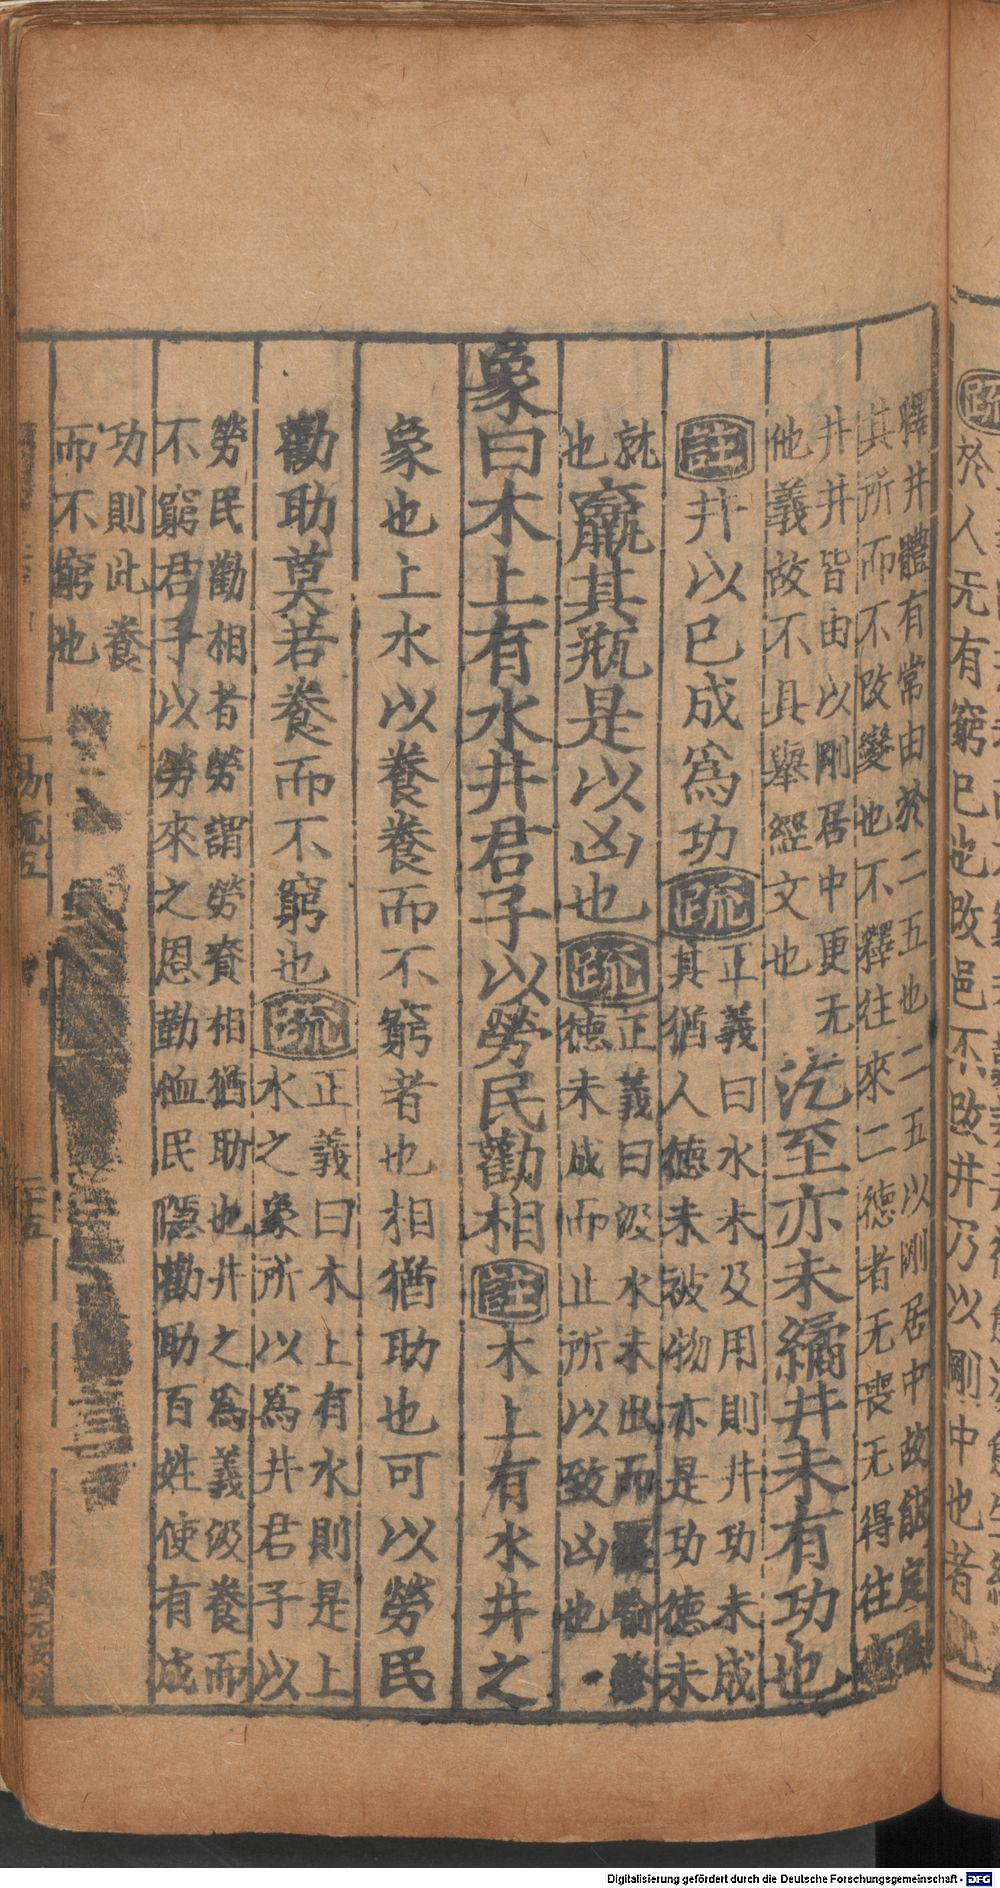 疏
於人无有窮已也改邑不改井乃以剛中也者
釋井體有常由於二五也二五以剛居中故能定
其所而不改變也不釋往來二德者无喪无得往
井井皆由以剛居中更无
他義故不具舉經文也
汔至亦未繘井未有功也
註井以已成爲功
疏
正義曰水未及用則井功未成
其猶人德未被物亦是功德未
就
也
羸其瓶是以凶也
疏
正義曰汲水未出而
德未成而止所以致凶也
象曰木上有水井君子以勞民勸相
註木上有水井之
象也上水以養養而不窮者也相猶助也可以勞民
勸助莫若養而不窮也
疏
正義曰木上有水則是上
水之象所以爲井君子以
勞民勸相者勞謂勞賚相猶助也井之爲義汲養而
不窮君子以勞來之恩勤恤民隱勸助百姓使有成
功則此養
而不窮也
易疏五
二十五
Digitalisierung gefördert durch die Deutsche Forschungsgemeinschaft - DFG